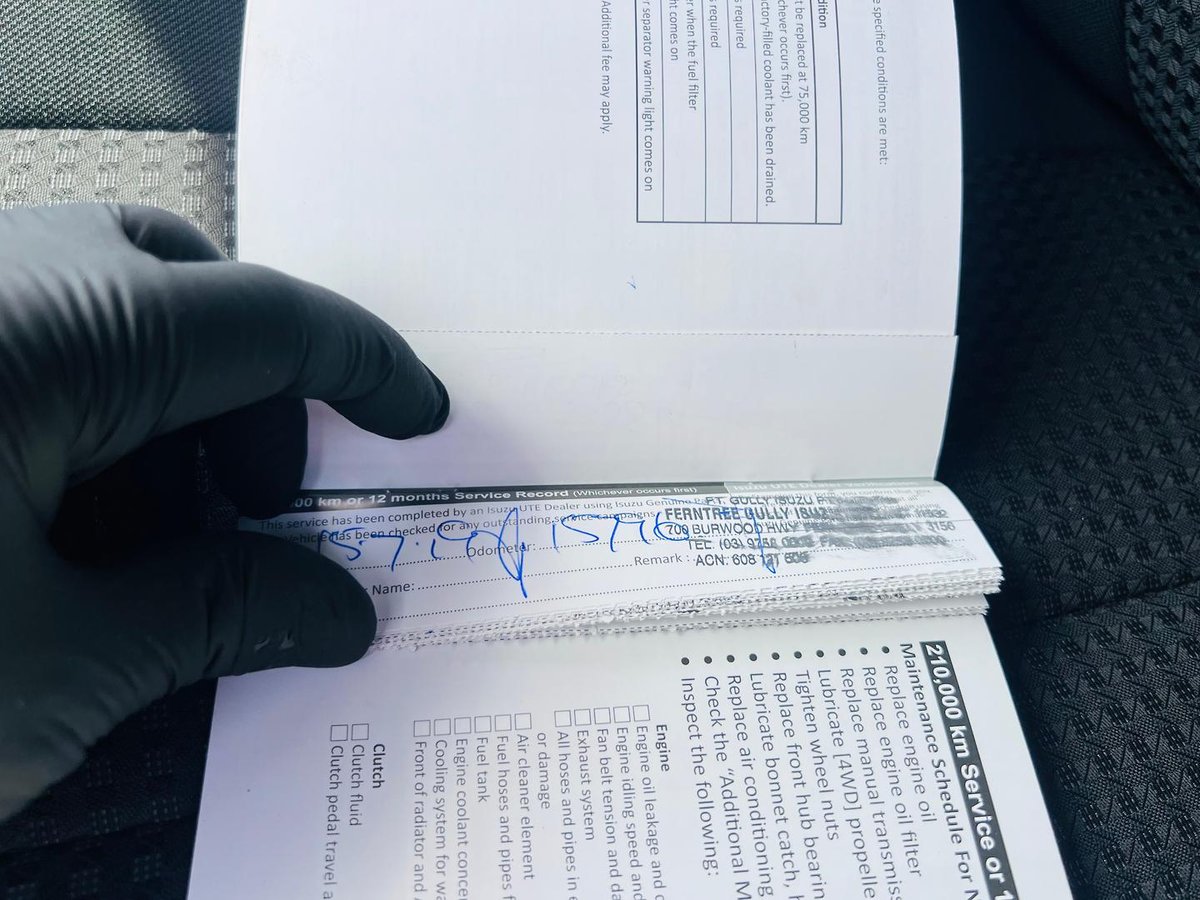 e specified conditions are met:
dition
t be replaced at 75,000 km
chever occurs first).
ctory-filled coolant has been drained.
s required
s required
er when the fuel filter
ht comes on
r separator warning light comes on
Additional fee may apply.
00 km or 12 months Service Record (Whichever occurs first)
This service has been completed by an Isuzu UTE Dealer using Isuzu Genuine
Vehicle has been checked for any outstanding service campaigns.
F.T. GULLY ISUZU
FERNTREE GULLY
709 BURWOOD HWY
3156
TEL: (03)
ACN. 608
15.7.19
Odometer:
Remark :
Name:
210,000 km Service or 1
Maintenance Schedule For N
• Replace engine oil
• Replace engine oil filter
• Replace manual transmiss
• Lubricate [4WD] propelle
• Tighten wheel nuts
• Replace front hub bearin
• Lubricate bonnet catch, h
• Replace air conditioning
• Check the “Additional M
• Inspect the following:
Engine
Engine oil leakage and c
Engine idling speed and
Fan belt tension and da
Exhaust system
All hoses and pipes in e
or damage
Air cleaner element
Fuel hoses and pipes f
Fuel tank
Engine coolant conce
Cooling system for wa
Front of radiator and
Clutch
Clutch fluid
Clutch pedal travel a